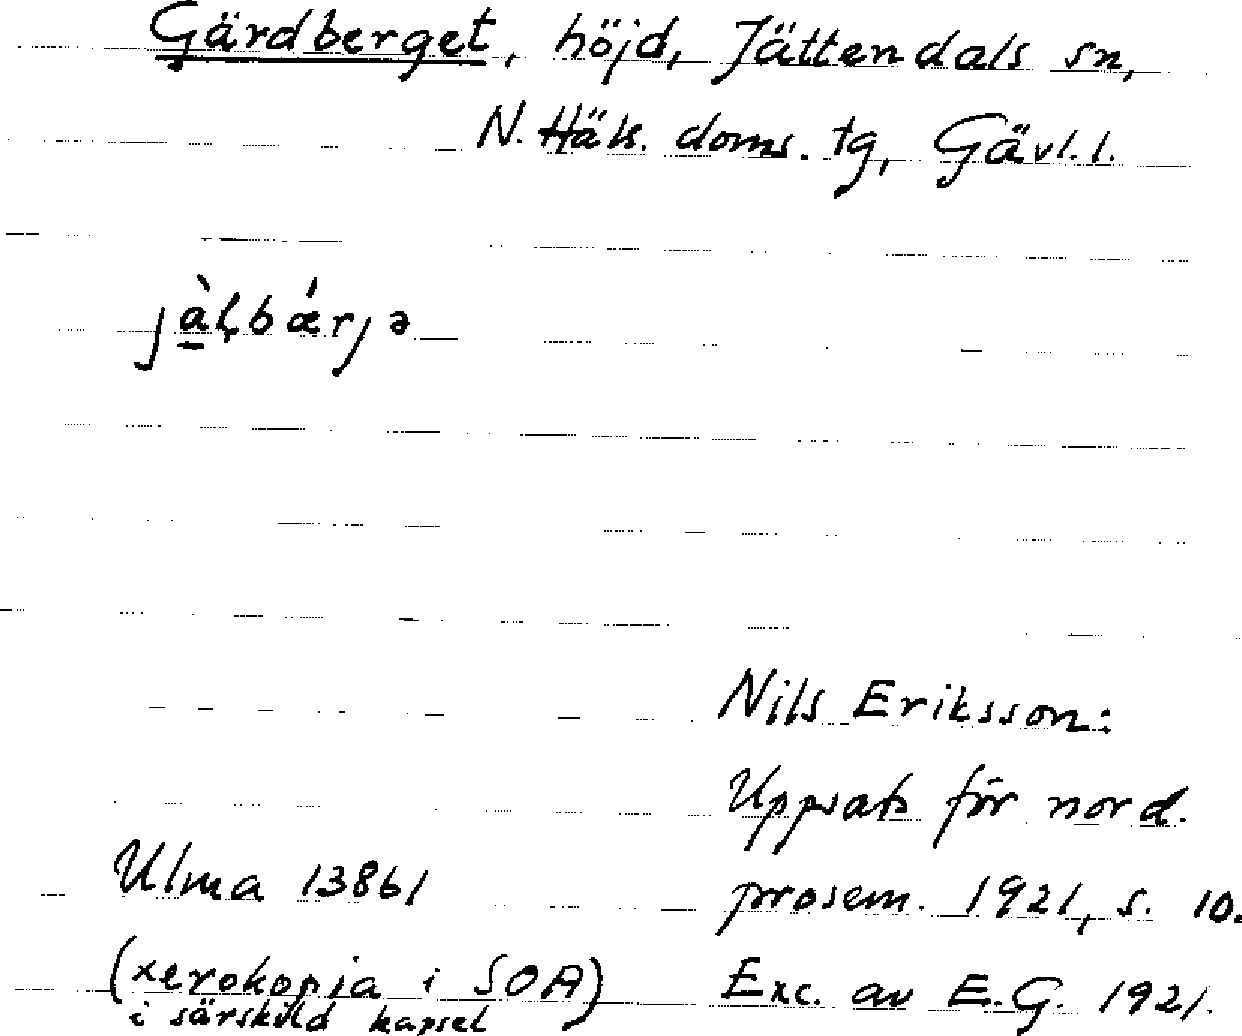 Gärdberget, höjd, Jättendals sn,
N. Häls. doms. tg, Gävl. l.
jàḷbǽrjə
Nils Eriksson:
Uppsats för nord.
Ulma 13861 prosem. 1921, s. 10.
(xerokopia i SOA) Exc. av E.G. 1921.
i särskild kapsel